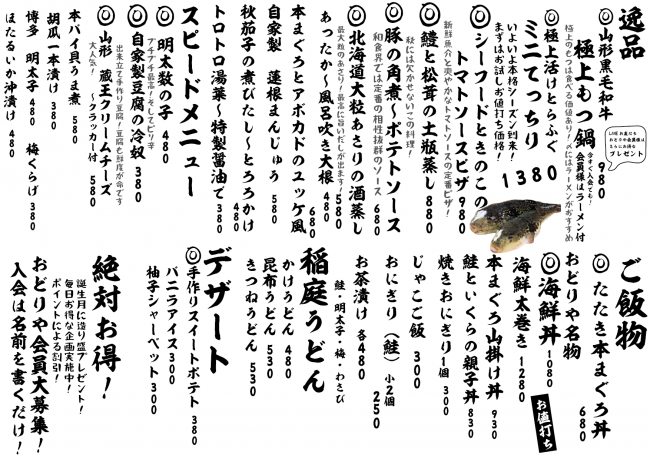 逸品
◎山形黒毛和牛
極上もつ鍋 980
今すぐ入会でも！
会員様はラーメン付
極上のもつは食べる価値あり！〆にはラーメンがおすすめ
LINEお友だち
おどりや会員様は
さらにお得な
プレゼント
◎極上活けとらふぐ
ミニてっちり 1380
いよいよ本格シーズン到来！
まずはお試しお値打ち価格！
◎シーフードときのこの
トマトソースピザ 980
新鮮魚介と爽やかなトマトソースの定番ピザ！
◎鱧と松茸の土瓶蒸し 880
秋には欠かせないこの料理！
◎豚の角煮〜ポテトソース 680
和食界では定番の相性抜群のソース
◎北海道大粒あさりの酒蒸し 580
最大粒のあさり！最高に旨いだしが出ます！
あったか〜風呂吹き大根 480
本まぐろとアボカドのユッケ風 680
自家製 蓮根まんじゅう 580
秋茄子の煮びたし〜とろろかけ 480
トロトロ湯葉〜特製醤油で 380
スピードメニュー
◎明太数の子 380
プチプチ最高！そしてピリ辛
◎自家製豆腐の冷奴 380
出来立て手作り豆腐！豆腐も鮮度が命です
◎山形 蔵王クリームチーズ
〜クラッカー付 580
大人気！
本バイ貝うま煮 580
胡瓜一本漬け 380
博多 明太子 480 梅くらげ 380
ほたるいか沖漬け 480
ご飯物
◎たたき本まぐろ丼 680
おどりや名物
◎海鮮丼 1080
お値打ち
海鮮太巻き 1280
本まぐろ山掛け丼 930
鮭といくらの親子丼 830
焼きおにぎり1個 300
じゃこご飯 300
おにぎり（鮭）小2個 250
お茶漬け 各480
鮭・明太子・梅・わさび
稲庭うどん
かけうどん 480
昆布うどん 530
きつねうどん 530
デザート
◎手作りスイートポテト 380
バニラアイス 300
柚子シャーベット 300
絶対お得！
誕生月に造り盛プレゼント！
毎日お得な企画実施中！
ポイントによる割引！
おどりや会員大募集！
入会は名前を書くだけ！